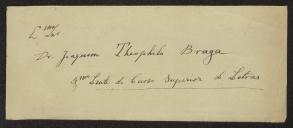 Dr. Joaquim Theophilo Braga
Lente do Curso Superior de Letras